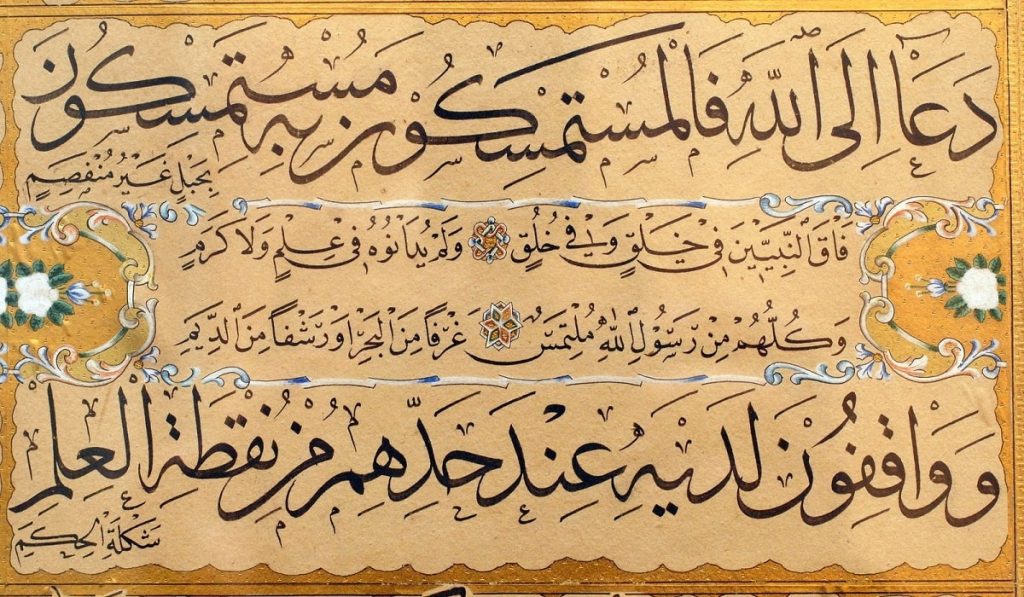 دَعَا إِلَى اللهِ فَالْمُسْتَمْسِكُونَ بِهِ مُسْتَمْسِكُونَ
بِحَبْلٍ غَيْرِ مُنْفَصِمٍ
فَاقَ النَّبِيِّينَ فِي خَلْقٍ وَفِي خُلُقٍ وَلَمْ يُدَانُوهُ فِي عِلْمٍ وَلَا كَرَمٍ
وَكُلُّهُمْ مِنْ رَسُولِ اللهِ مُلْتَمِسٌ غَرْفًا مِنَ الْبَحْرِ اَوْ رَشْفًا مِنَ الدِّيَمِ
وَوَاقِفُونَ لَدَيْهِ عِنْدَ حَدِّهِمْ مِنْ نُقْطَةِ الْعِلْمِ
شَكْلَةِ الْحِكَمِ